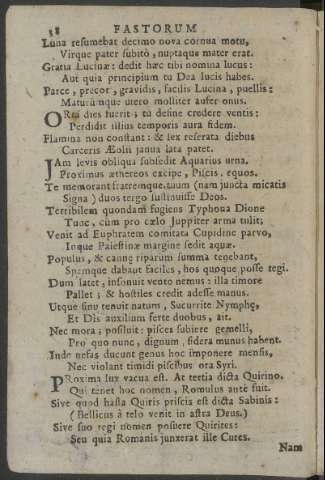 38 FASTORUM
Luna resumebat decimo nova cornua motu,
Virque pater subitò, nuptaque mater erat.
Gratia Lucinæ: dedit hæc tibi nomina lucus:
Aut quia principium tu Dea lucis habes.
Parce, precor, gravidis, facilis Lucina, puellis:
Maturúmque utero molliter aufer onus.
ORta dies fuerit; tu desine credere ventis:
Perdidit illius temporis aura fidem.
Flamina non constant: & sex reserata diebus
Carceris Æolii janua lata patet.
JAm levis obliqua subsedit Aquarius urna.
Proximus æthereos excipe, Piscis, equos.
Te memorant fratremque tuum (nam juncta micatis
Signa) duos tergo sustinuisse Deos.
Terribilem quondam fugiens Typhona Dione
Tunc, cùm pro cælo Juppiter arma tulit;
Venit ad Euphratem comitata Cupidine parvo,
Inque Palestinæ margine sedit aquæ.
Populus, & cannę riparum summa tenebant,
Spemque dabant faciles, hos quoque posse tegi.
Dum latet, insonuit vento nemus: illa timore
Pallet; & hostiles credit adesse manus.
Utque sinu tenuit natum, Sucurrite Nymphę,
Et Dis auxilium ferte duobus, ait.
Nec mora; posiluit: pisces subiere gemelli,
Pro quo nunc, dignum, sidera munus habent.
Inde nefas ducunt genus hoc imponere mensis,
Nec violant timidi piscibus ora Syri.
PRoxima lux vacua est. At tertia dicta Quirino.
Qui tenet hoc nomen, Romulus ante fuit.
Sive quod hasta Quiris priscis est dicta Sabinis:
(Bellicus à telo venit in astra Deus.)
Sive suo regi nomen posuere Quirites:
Seu quia Romanis junxerat ille Cures.
Nam